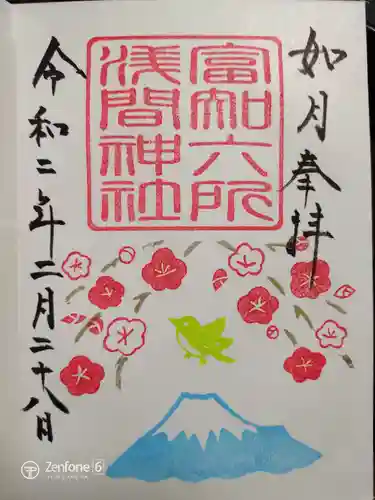 如月奉拝
富知六所
浅間神社
令和二年二月二十八日
Zenfone 6